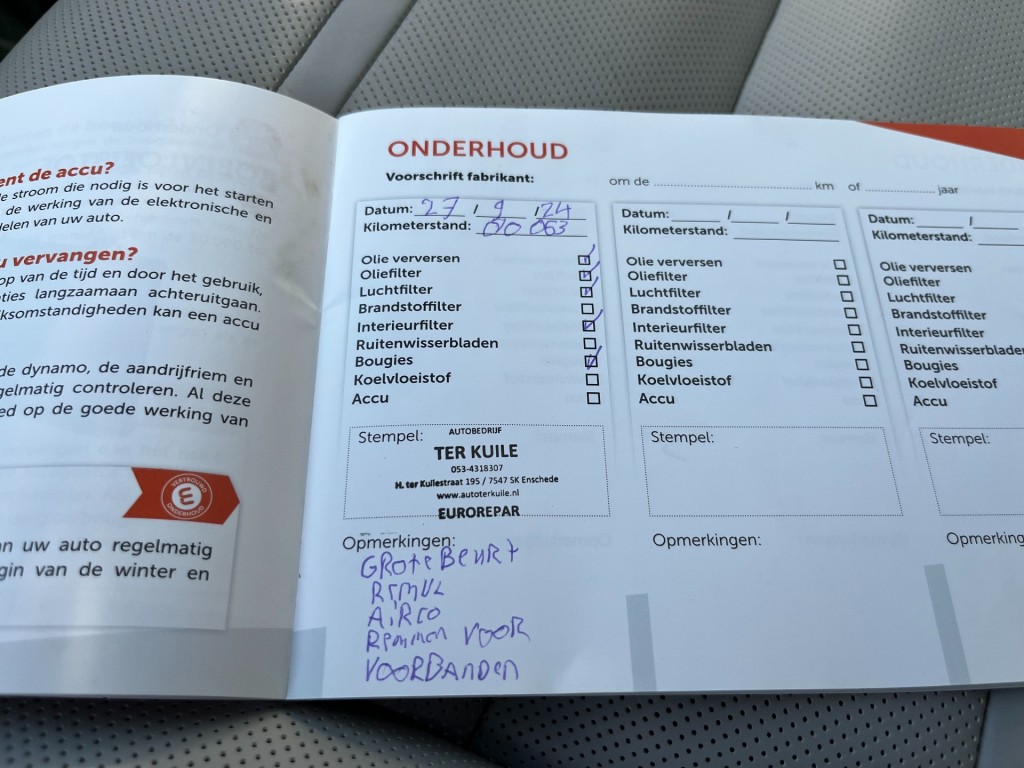 ent de accu?
le stroom die nodig is voor het starten
de werking van de elektronische en
delen van uw auto.
u vervangen?
op van de tijd en door het gebruik,
ties langzaamaan achteruitgaan.
iksomstandigheden kan een accu
de dynamo, de aandrijfriem en
gelmatig controleren. Al deze
ed op de goede werking van
VERTROUWD
ONDERHOUD
an uw auto regelmatig
gin van de winter en
ONDERHOUD
Voorschrift fabrikant: om de km of jaar
Datum: 27 / 9 / 24
Kilometerstand: 010 063
Olie verversen
Oliefilter
Luchtfilter
Brandstoffilter
Interieurfilter
Ruitenwisserbladen
Bougies
Koelvloeistof
Accu
Stempel:
AUTOBEDRIJF
TER KUILE
053-4318307
H. ter Kuilestraat 195 / 7547 SK Enschede
www.autoterkuile.nl
EUROREPAR
Opmerkingen:
GROTE BEURT
AIRCO
REMMEN VOOR
VOORBANDEN
Datum: / /
Kilometerstand:
Olie verversen
Oliefilter
Luchtfilter
Brandstoffilter
Interieurfilter
Ruitenwisserbladen
Bougies
Koelvloeistof
Accu
Stempel:
Opmerkingen:
Datum: /
Kilometerstand:
Olie verversen
Oliefilter
Luchtfilter
Brandstoffilter
Interieurfilter
Ruitenwisserbladen
Bougies
Koelvloeistof
Accu
Stempel:
Opmerking